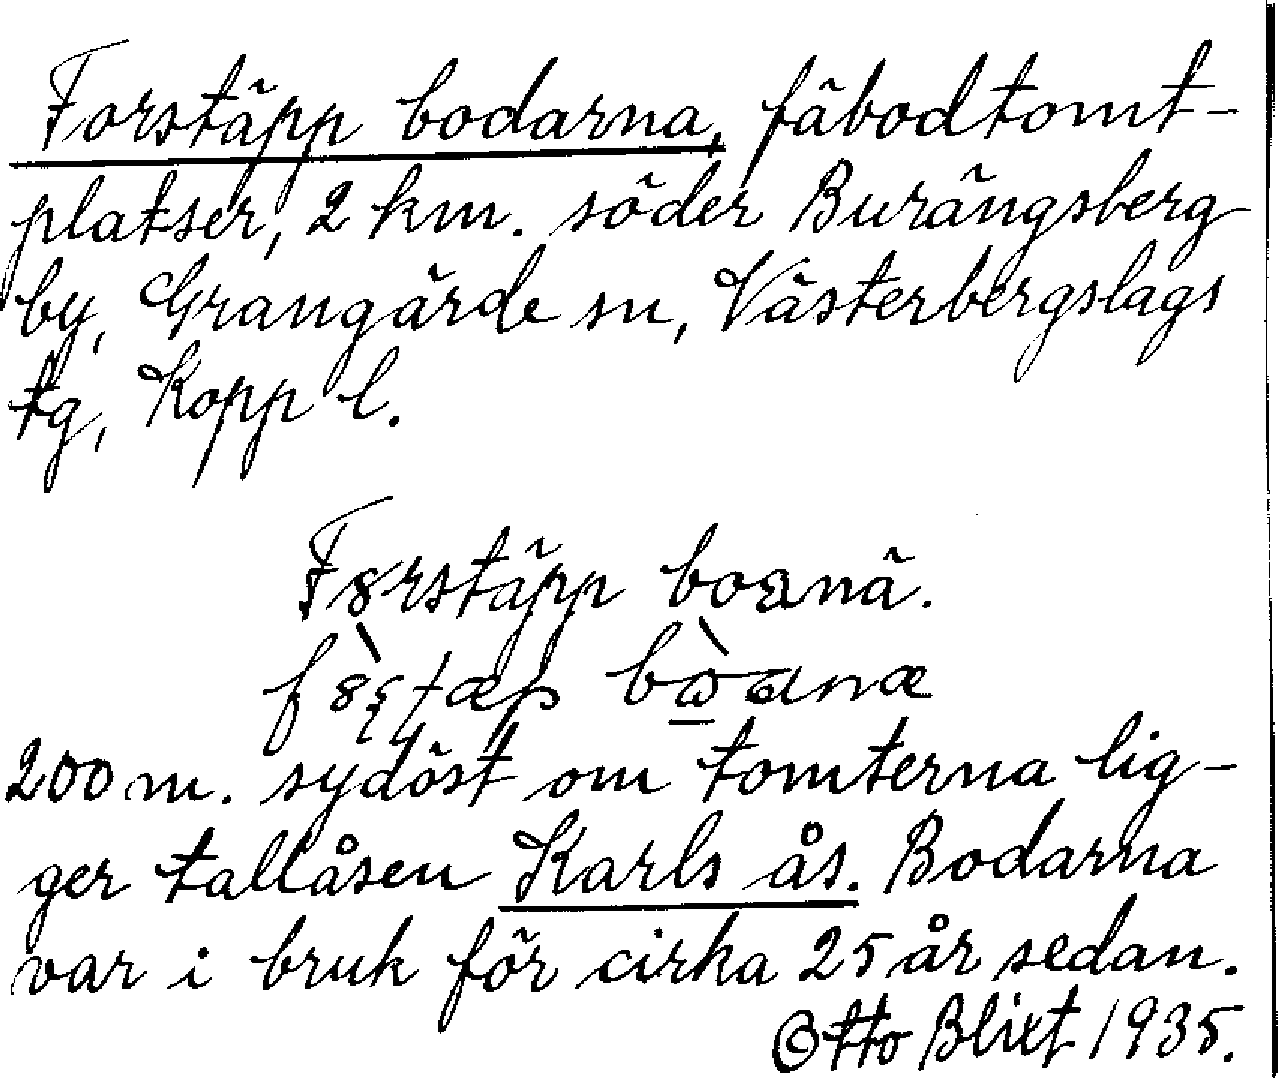 Forstäpp bodarna, fäbodtomt-
platser, 2 km. söder Burängsberg
by, Grangärde sn, Västerbergslags
tg, Kopp l.
F8rstäpp boanä.
200 m. sydöst om tomterna lig-
ger tallåsen Karls ås. Bodarna
var i bruk för cirka 25 år sedan.
Otto Blixt 1935.